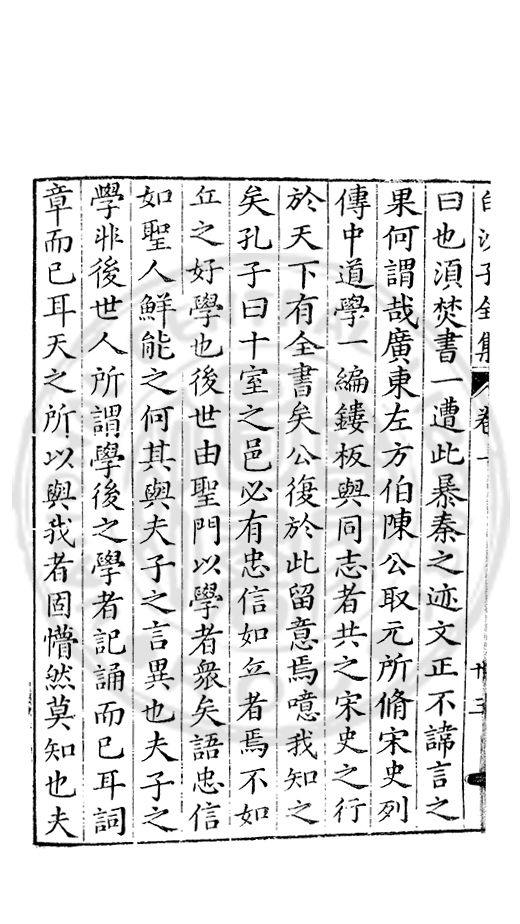 白沙子全集 卷一 廿三
曰也湏焚書一遭此暴秦之迹文正不諱言之
果何謂哉廣東左方伯陳公取元所脩宋史列
傳中道學一編鏤板與同志者共之宋史之行
於天下有全書矣公復於此留意焉噫我知之
矣孔子曰十室之邑必有忠信如丘者焉不如
丘之好學也後世由聖門以學者衆矣語忠信
如聖人鮮能之何其與夫子之言異也夫子之
學非後世人所謂學後之學者記誦而已耳詞
章而已耳天之所以與我者固懵然莫知也夫